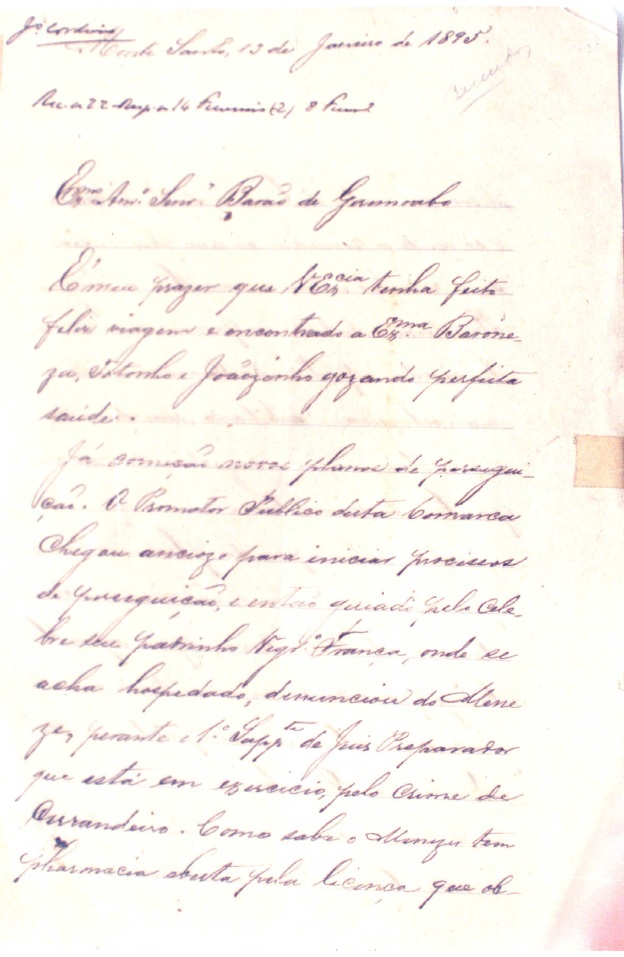 Jº Cordeiro
Monte Santo, 13 de Janeiro de 1895.
Rec. a 22 Resp. a 14 Fevereiro (2)
Exmº Amº Senrº Barão de Geremoabo
É meu prazer que VExcia tenha feito
feliz viagem e encontrado a Exma Barone-
za, Totonho e Joãozinho gozando perfeita
saúde.
Já começão novos planos de persegui-
ção. O Promotor Publico desta Comarca
chegou ancioso para iniciar processos
de perseguição, e então guiado pelo cele-
bre seu padrinho Vigrº França, onde se
acha hospedado, denunciou do Mene
zes, perante o 1º Suppte de Juis Preparador
que está em exercicio, pelo crime de
Currandeiro. Como sabe o Menezes tem
pharmacia aberta pela licença que ob-